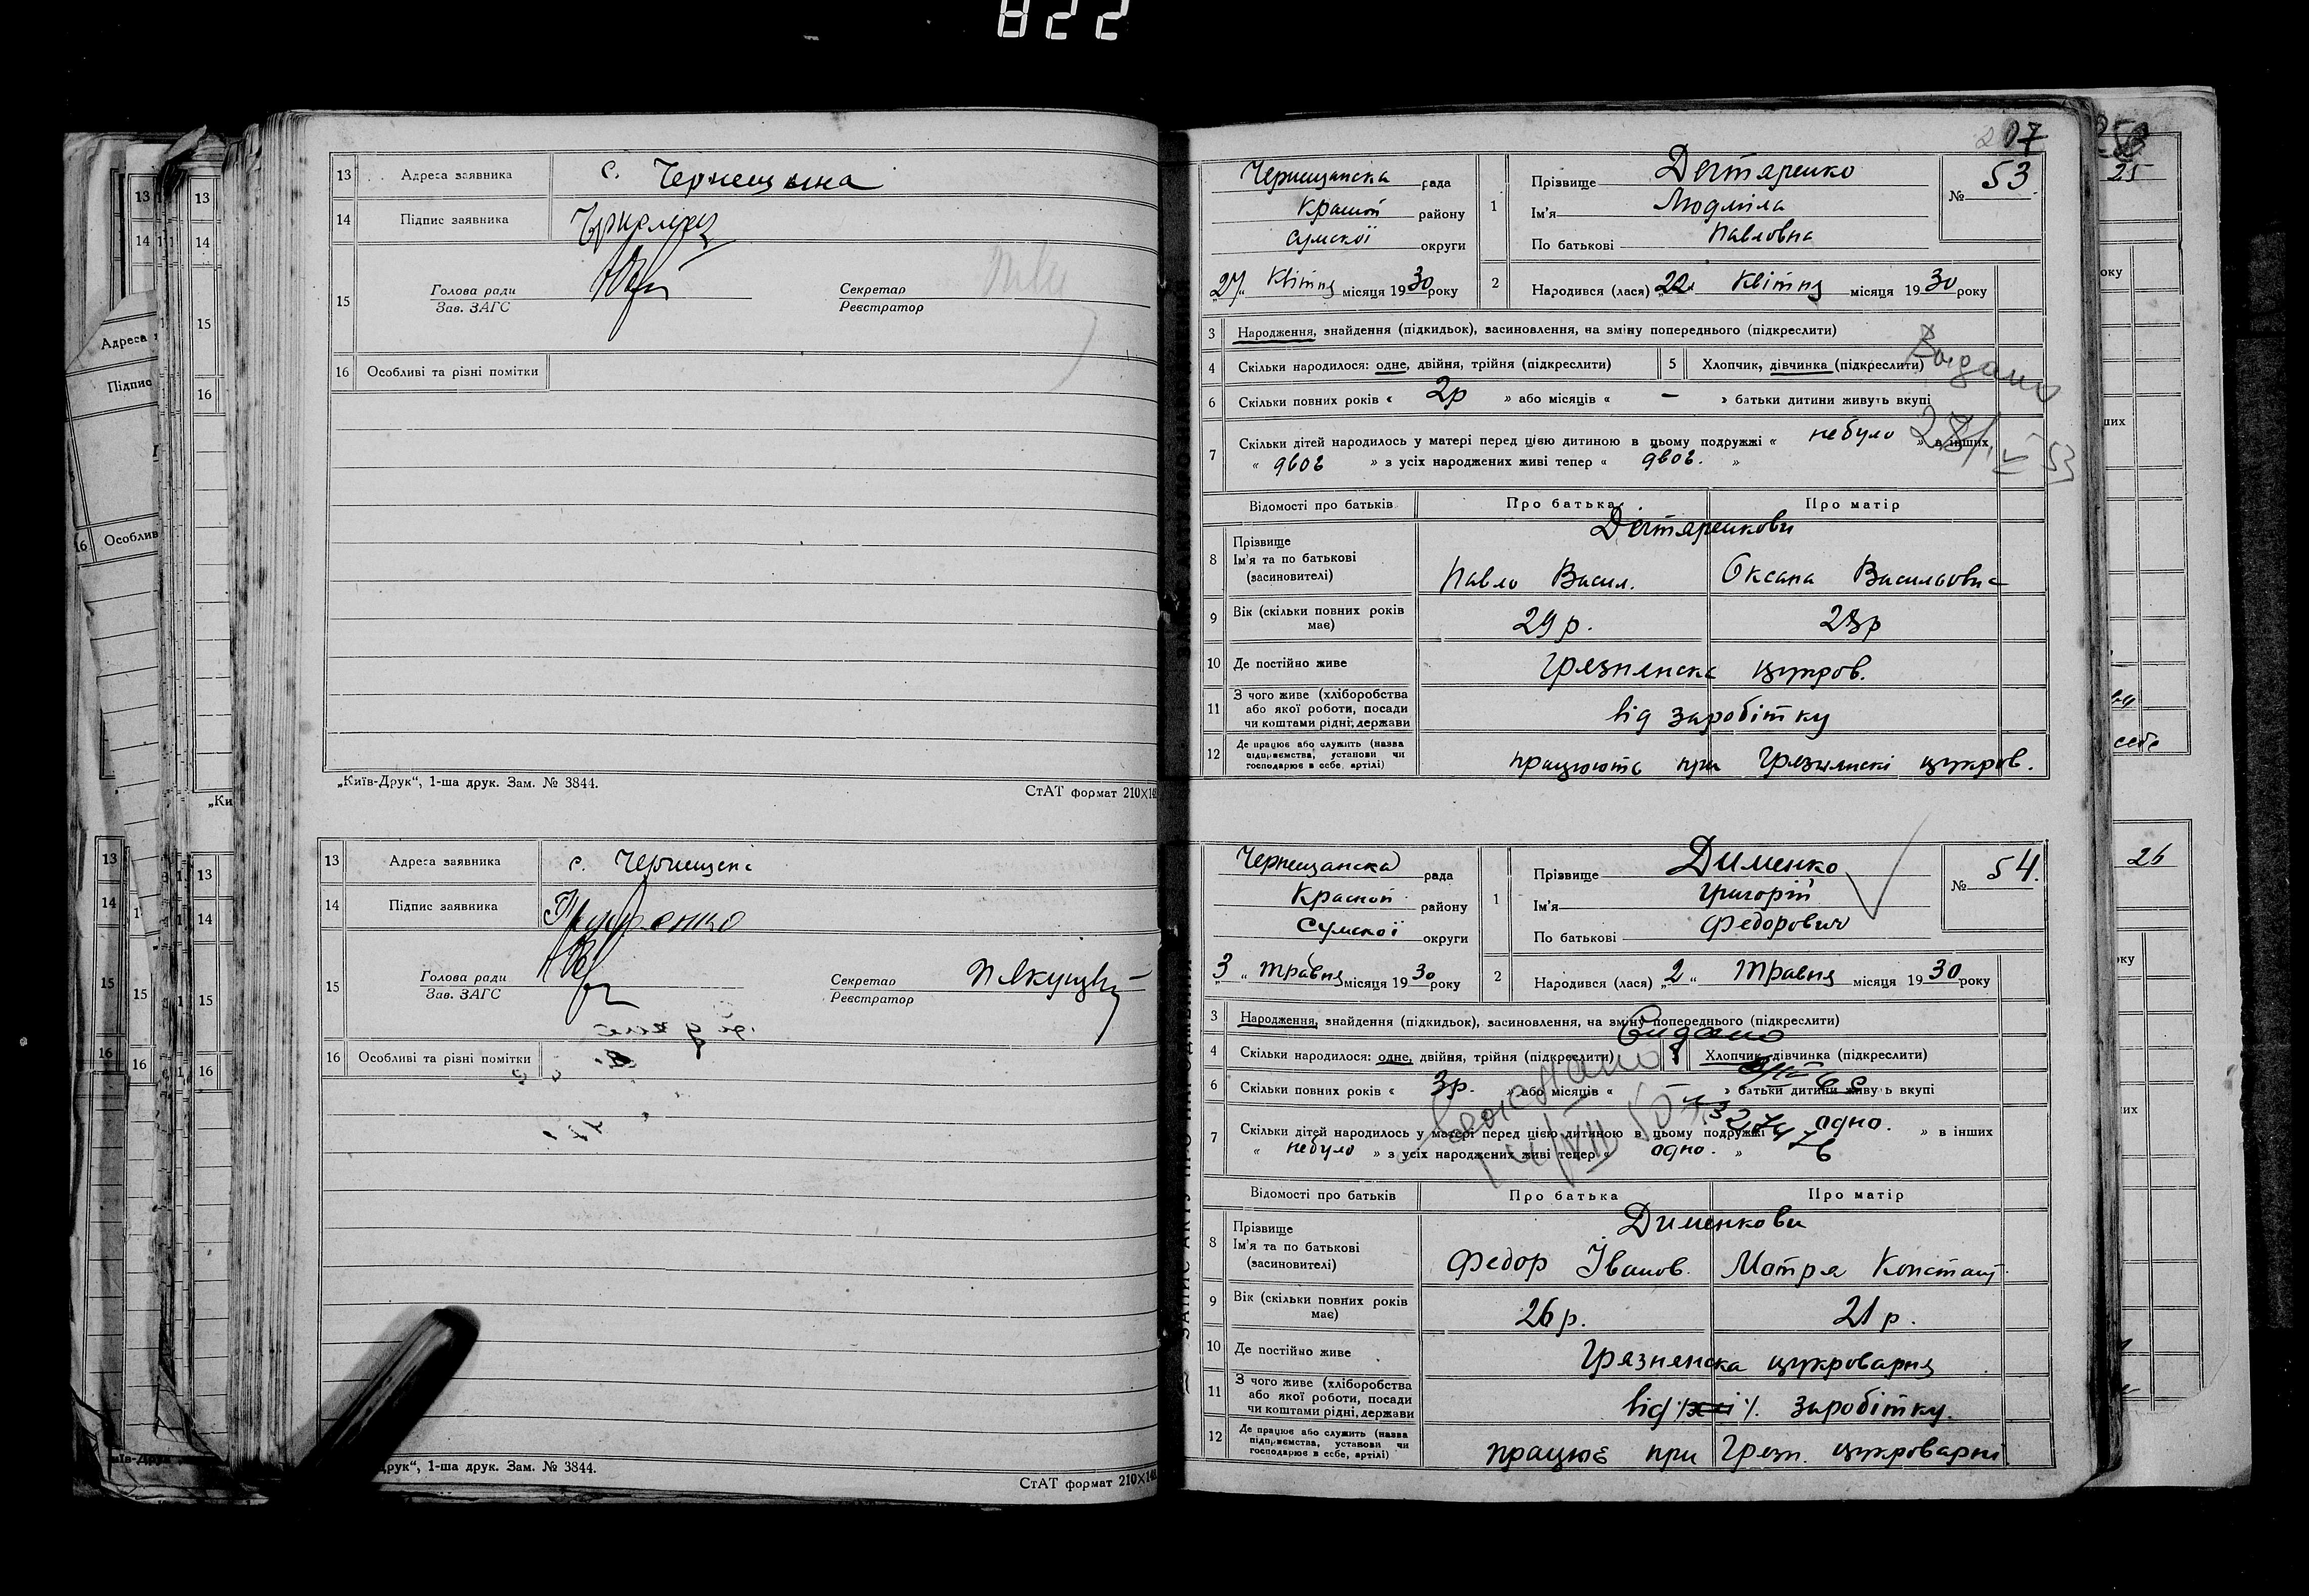 822
13 Адреса заявника с. Чернещина
14 Підпис заявника
15 Голова ради Секретар
Зав. ЗАГС Реєстратор
16 Особливі та різні помітки
„Київ-Друк“, 1-ша друк. Зам. № 3844.
СтАТ формат 210×148
13 Адреса заявника с. Чернещина
14 Підпис заявника
15 Голова ради Секретар
Зав. ЗАГС Реєстратор
16 Особливі та різні помітки
друк“, 1-ша друк. Зам. № 3844.
СтАТ формат 210×148
207
Чернещанска рада
Красноп району
Сумскої округи
„27“ Квітня місяця 1930 року
1 Прізвище Дегтяренко
Ім'я Людміла
По батькові Павловна
№ 53
2 Народився (лася) „22“ Квітня місяця 1930 року
3 Народження, знайдення (підкидьок), засиновлення, на зміну попереднього (підкреслити)
4 Скільки народилося: одне, двійня, трійня (підкреслити) 5 Хлопчик, дівчинка (підкреслити)
Видано
6 Скільки повних років « 2р » або місяців « — » батьки дитини живуть вкупі
7 Скільки дітей народилось у матері перед цією дитиною в цьому подружжі « небуло » в інших
« двоє » з усіх народжених живі тепер « двоє. »
Відомості про батьків Про батька Про матір
8 Прізвище Дегтяренкови
Ім'я та по батькові
(засиновителі) Павло Васил. Оксана Васильовна
9 Вік (скільки повних років має) 29 р. 28р
10 Де постійно живе Грязнянска цукров.
11 З чого живе (хліборобства
або якої роботи, посади
чи коштами рідні, держави від заробітку
12 Де працює або служить (назва
підприємства, установи чи
господарює в себе, артілі) працюють при Грязнянскі цукров.
Чернещанска рада
Красноп району
Сумскої округи
„3“ травня місяця 1930 року
1 Прізвище Дименко
Ім'я Григорій
По батькові Федорович
№ 54.
2 Народився (лася) „2“ Травня місяця 1930 року
3 Народження, знайдення (підкидьок), засиновлення, на зміну попереднього (підкреслити)
Видано
4 Скільки народилося: одне, двійня, трійня (підкреслити) Хлопчик, дівчинка (підкреслити)
6 Скільки повних років « 3р. » або місяців « — » батьки дитини живуть вкупі
7 Скільки дітей народилось у матері перед цією дитиною в цьому подружжі одно. » в інших
« небуло » з усіх народжених живі тепер « одно. »
Відомості про батьків Про батька Про матір
8 Прізвище Дименкови
Ім'я та по батькові
(засиновителі) Федор Іванов. Мотря Констант.
9 Вік (скільки повних років має) 26 р. 21 р.
10 Де постійно живе Грязнянска цукроварня
11 З чого живе (хліборобства
або якої роботи, посади
чи коштами рідні, держави від заробітку.
12 Де працює або служить (назва
підприємства, установи чи
господарює в себе, артілі) працює при Грязн. цукроварні
25
26